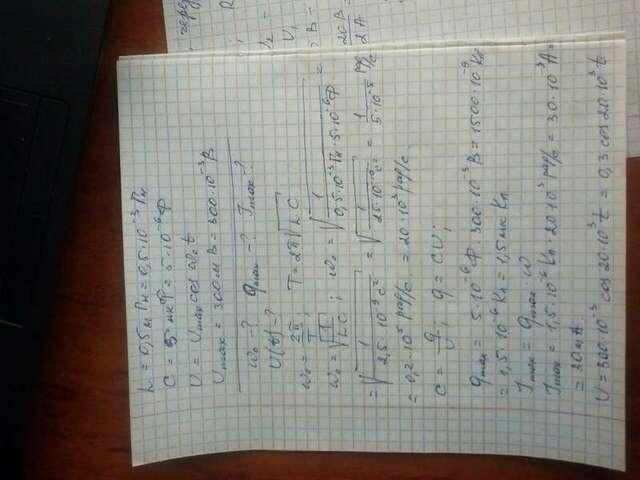 L = 0,5 мГн = 0,5·10⁻³ Гн
C = 5 мкФ = 5·10⁻⁶ Ф
U = Umax cos ω₀t
Umax = 300 мВ = 300·10⁻³ В
ω₀ -? qmax -? Imax -?
U(t) -?
ω₀ = 2π/T; T = 2π√LC;
ω₀ = √(1/LC); ω₀ = √(1/(0,5·10⁻³Гн·5·10⁻⁶Ф)) =
= √(1/(2,5·10⁻⁹c²)) = √(1/(25·10⁻¹⁰c²)) = 1/(5·10⁻⁵) рад/с
= 0,2·10⁵ рад/с. = 20·10³ рад/с.
C = q/U; q = CU;
qmax = 5·10⁻⁶ Ф·300·10⁻³ В = 1500·10⁻⁹ Кл
= 1,5·10⁻⁶ Кл = 1,5 мкКл
Imax = qmax·ω
Imax = 1,5·10⁻⁶ Кл·20·10³ рад/с = 30·10⁻³ А =
= 30 мА.
U = 300·10⁻³ cos 20·10³ t = 0,3 cos 20·10³ t
20 В
2 А